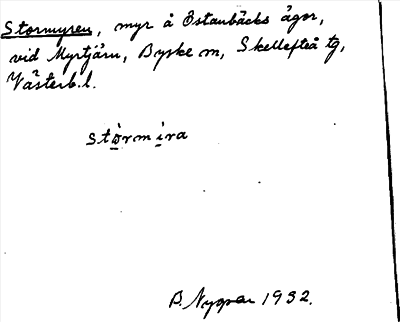 Stormyren, myr å Östanbäcks ägor,
vid Myrtjärn, Byske sn, Skellefteå tg,
Västerb.l.
stòrmira
B. Nygren 1932.